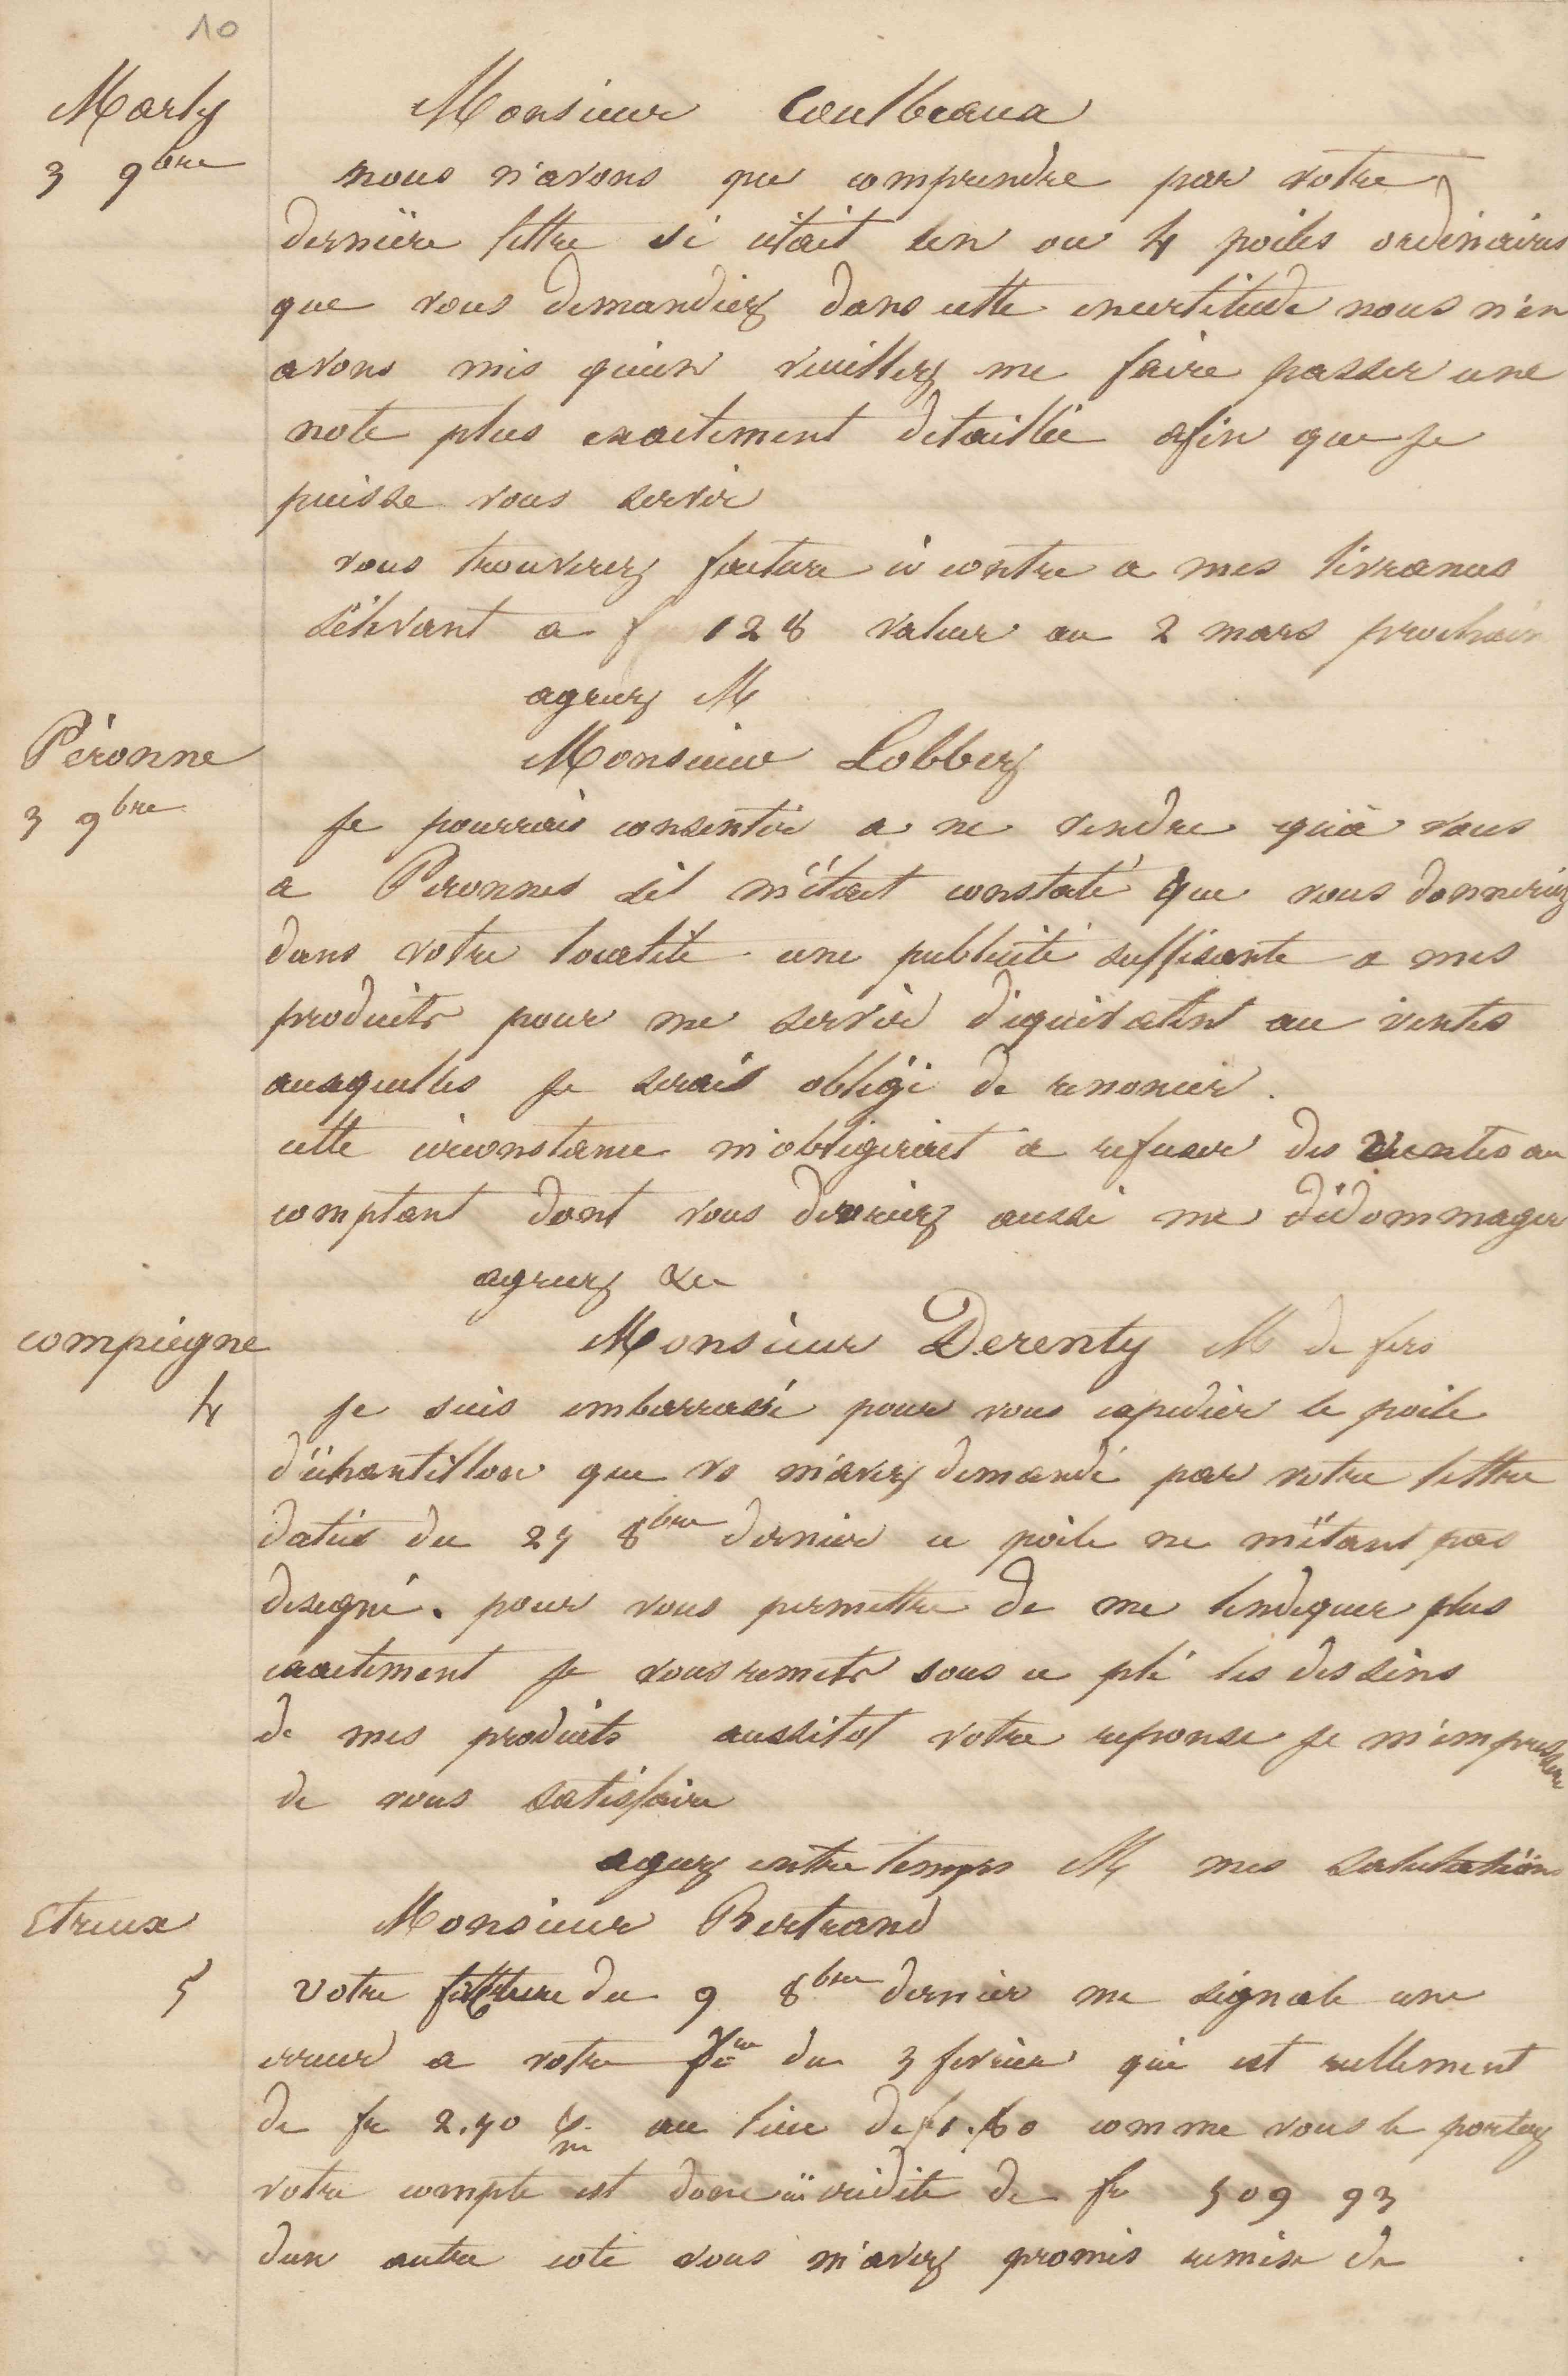 10
Marly
3 9bre
Monsieur Coulbeaux
nous n'avons pu comprendre par votre
dernière lettre si cétait un ou 4 poiles ordinaires
que vous demandiez dans cette incertitude nous n'en
avons mis qu'un veuillez me faire passer une
note plus exactement detaillée afin que je
puisse vous servir
vous trouverez facture ci contre a mes livrances
s'élevant a f 128 valeur au 2 mars prochain
agreez M
Péronne
3 9bre
Monsieur Lobbez
Je pourrais consentir a ne vendre qu'à vous
a Peronnes sil m'était constaté que vous donneriez
dans votre localité une publicité suffisante a mes
produits pour me servir d'equivalent au ventes
auxquelles je serais obligé de renoncer.
cette circonstance m'obligerait a refuser des ventes au
comptant dont vous devriez aussi me dédommager
agreez &a
compiegne
4
Monsieur Derenty M de fers
Je suis embarrassé pour vous expedier le poile
d'échantillon que vs m'avez demandé par votre lettre
datée du 27 8bre dernier ce poile ne m'étant pas
designé. pour vous permettre de me lindiquer plus
exactement je vous remets sous ce pli les dessins
de mes produits aussitot votre reponse je m'empresserai
de vous satisfaire
agreez entre temps M mes salutations
Etreux
5
Monsieur Bertrand
votre facture du 9 8bre dernier me signale une
erreur a votre fre du 3 fevrier qui est reellement
de fr 2.70 au lieu de f 1.80 comme vous le portez
votre compte est donc crédité de fr 509 93
dun autre coté vous m'avez promis remise de